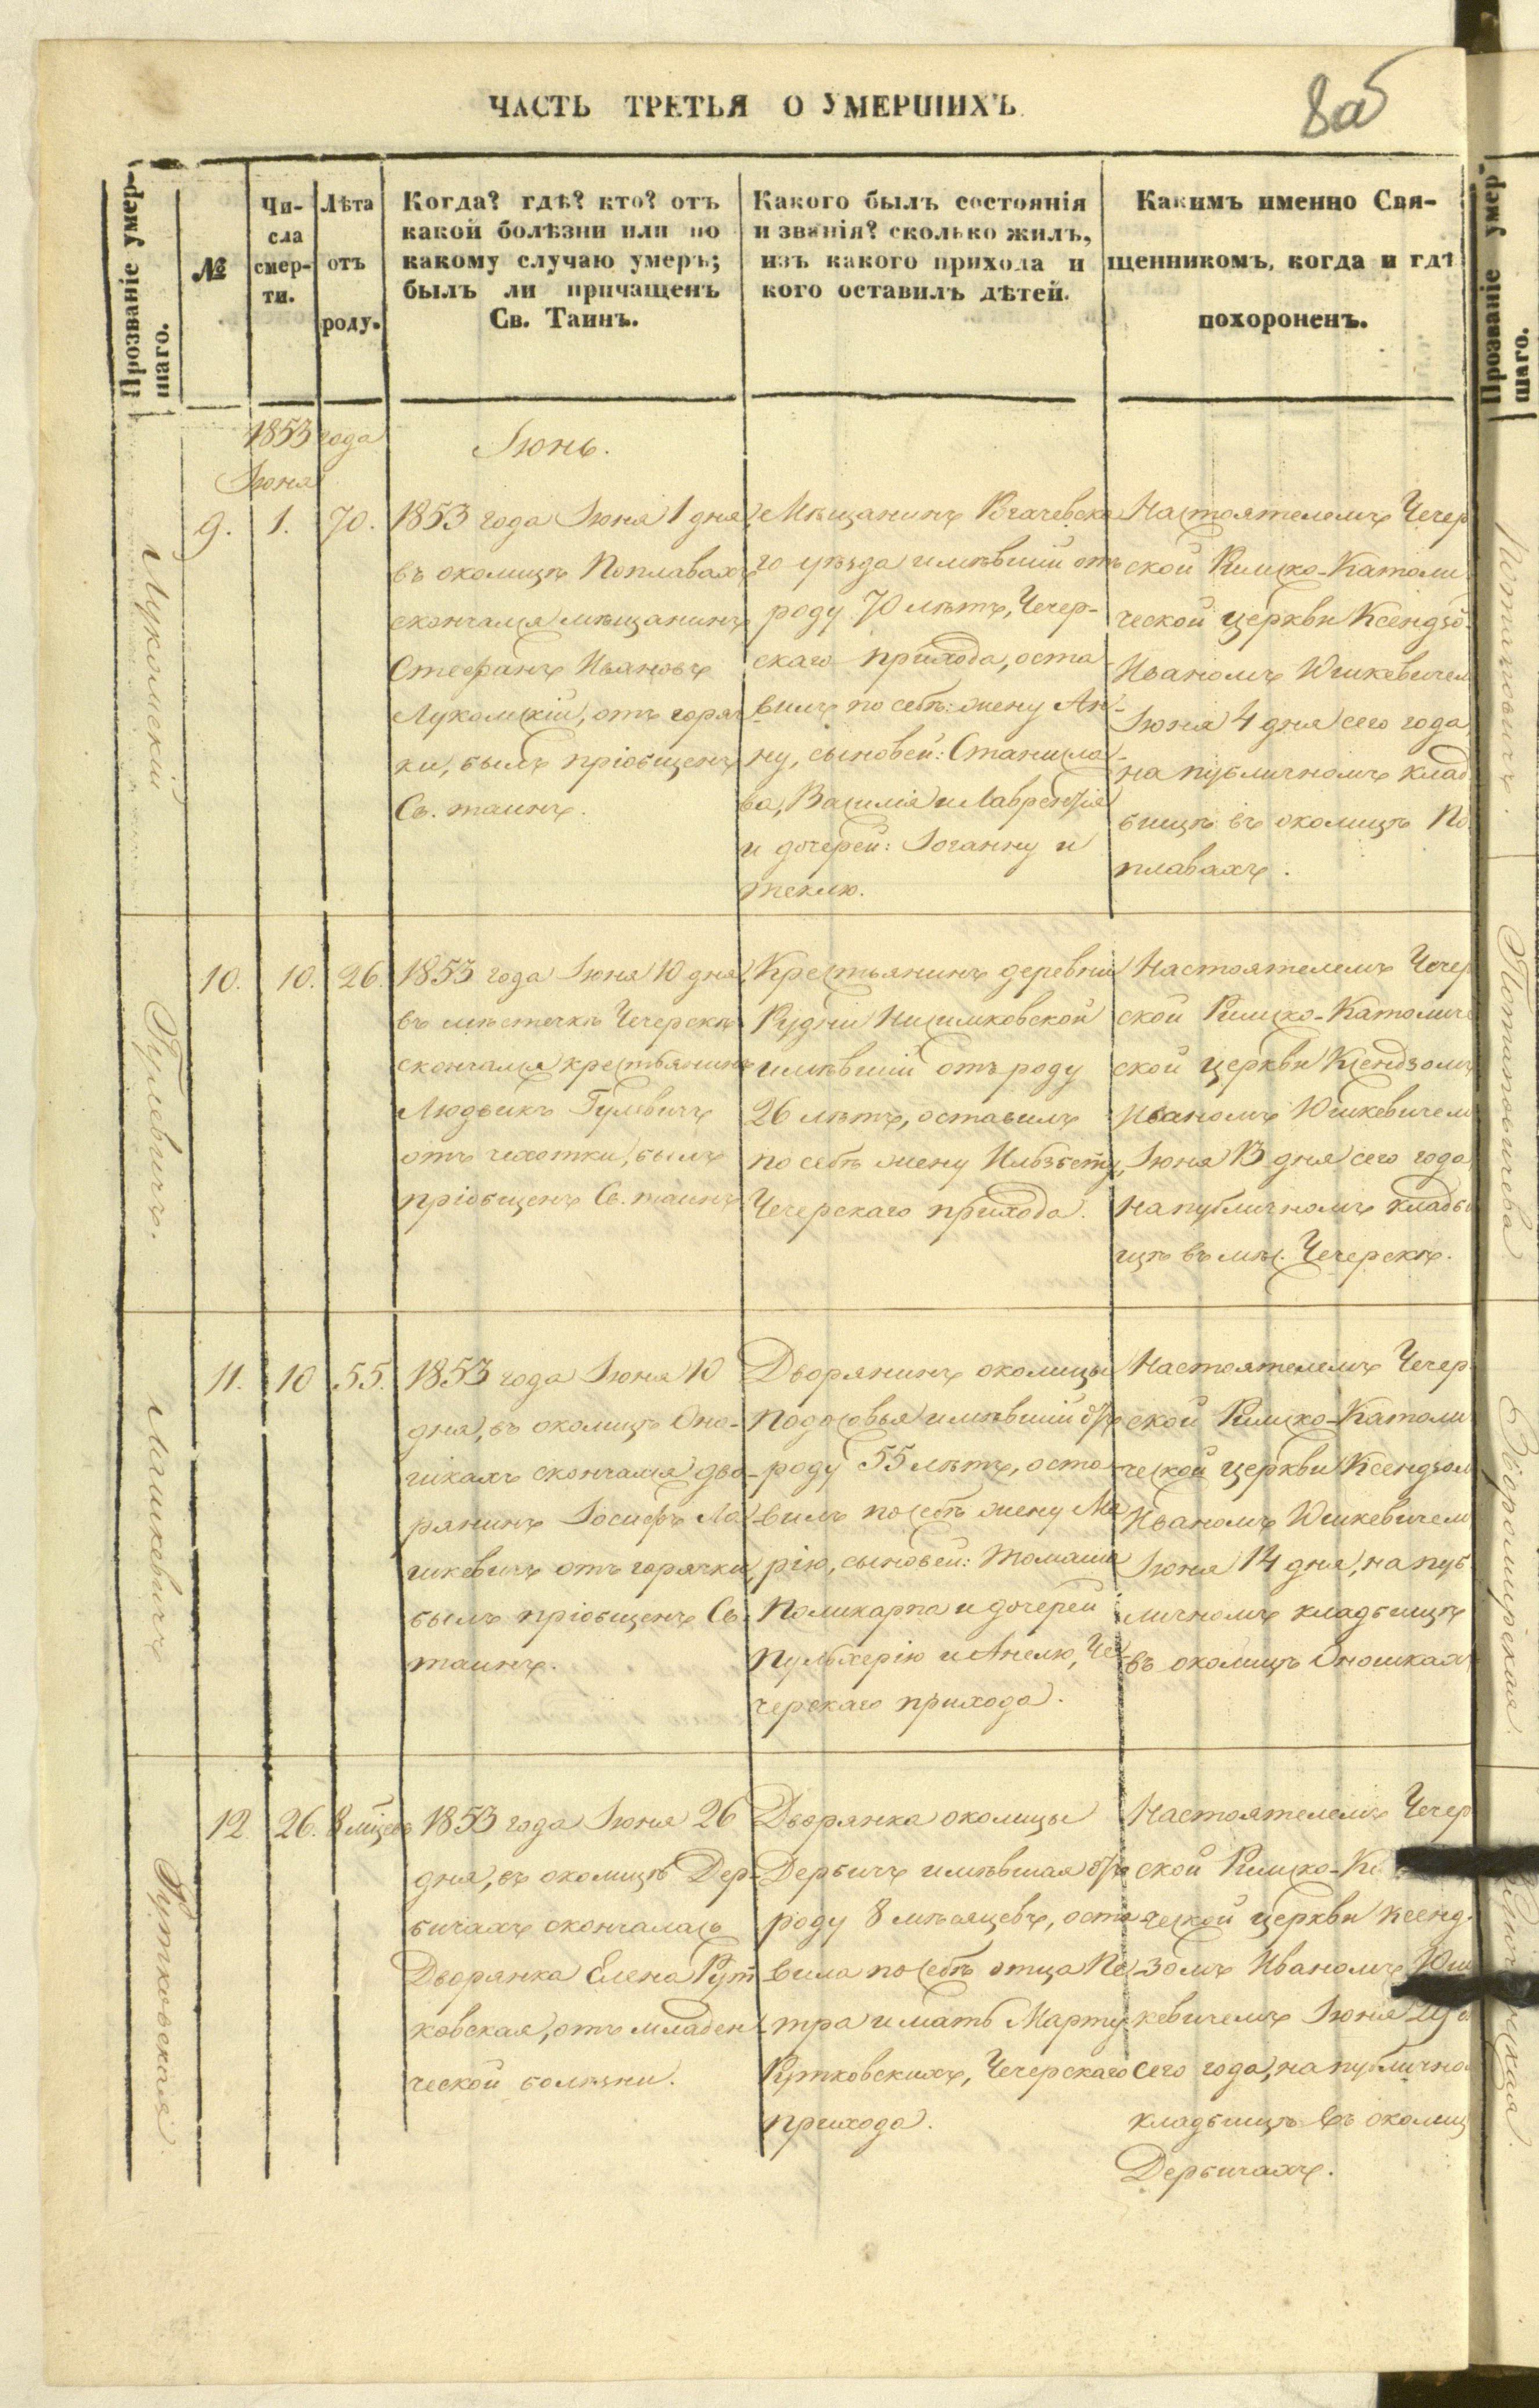 ЧАСТЬ ТРЕТЬЯ О УМЕРШИХЪ
8об
Прозваніе умер-
шаго.
№
Чи-
сла
смер-
ти.
Лѣта
отъ
роду.
Когда? гдѣ? кто? отъ
какой болѣзни или по
какому случаю умеръ;
былъ ли причащенъ
Св. Таинъ.
Какого былъ состоянія
и званія? сколько жилъ,
изъ какого прихода и
кого оставилъ дѣтей.
Какимъ именно Свя-
щенникомъ, когда и гдѣ
похороненъ.
1853 года
Іюня
Іюнь.
Лукомскій
9.
1.
70.
1853 года Іюня 1 дня,
въ околицѣ Поплавахъ
скончался мѣщанинъ
Стефанъ Ивановъ
Лукомскій, отъ горяч
ки, былъ пріобщенъ
Св. таинъ.
Мѣщанинъ Рогачевска
го уѣзда имѣвшій отъ
роду 70 лѣтъ, Чечер-
скаго прихода, оста
вилъ по себѣ: жену Ан-
ну, сыновей: Станисла-
ва, Василія и Лаврентія
и дочерей: Іоганну и
Теклю.
Настоятелемъ Чечер
ской Римско-Католи
ческой церкви Ксендзо
Иваномъ Юшкевичем
Іюня 4 дня сего года,
на публичномъ клад
бищѣ въ околицѣ По
плавахъ.
Гулевичъ.
10.
10.
26.
1853 года Іюня 10 дня,
въ мѣстечкѣ Чечерскѣ
скончался крестьянинъ
Людвикъ Гулевичъ
отъ чахотки, былъ
пріобщенъ Св. таинъ
Крестьянинъ деревни
Рудни Нисимковской
имѣвшій отъ роду
26 лѣтъ, оставилъ
по себѣ жену Ильзбету,
Чечерскаго прихода.
Настоятелемъ Чечер
ской Римско-Католиче
ской церкви Ксендзомъ
Иваномъ Юшкевичем
Іюня 13 дня сего года
на публичномъ кладби
щѣ въ мѣс. Чечерскѣ.
Машкевичъ
11.
10
55.
1853 года Іюня 10
дня, въ околицѣ Оно-
шкахъ скончался дво-
рянинъ Іосифъ Ма
шкевичъ отъ горячки,
былъ пріобщенъ Св.
таинъ.
Дворянинъ околицы
Подосовья имѣвшій отъ
роду 55 лѣтъ, оста
вилъ по себѣ жену Ма
рію, сыновей: Томаша
Поликарпа и дочерей
Пульхерію и Анелю, Че
черскаго прихода.
Настоятелемъ Чечер
ской Римско-Католи
ческой церкви Ксендзом
Иваномъ Юшкевичем
Іюня 14 дня, на пуб
личномъ кладбищѣ
въ околицѣ Оношках
Рутковская.
12.
26.
8 мѣсяц
1853 года Іюня 26
дня, въ околицѣ Дер-
бичахъ скончалась
Дворянка Елена Рут
ковская, отъ младен
ческой болѣзни.
Дворянка околицы
Дербичъ имѣвшая отъ
роду 8 мѣсяцевъ, оста
вила по себѣ отца Пе
тра и мать Марту
Рутковскихъ, Чечерскаго
прихода.
Настоятелемъ Чечер
ской Римско-К
ческой церкви Ксенд-
зомъ Иваномъ Юш
кевичемъ Іюня 29
сего года, на публично
кладбищѣ въ околиц
Дербичахъ.
Прозваніе умер
шаго.
Потаповичъ.
Потаповичева